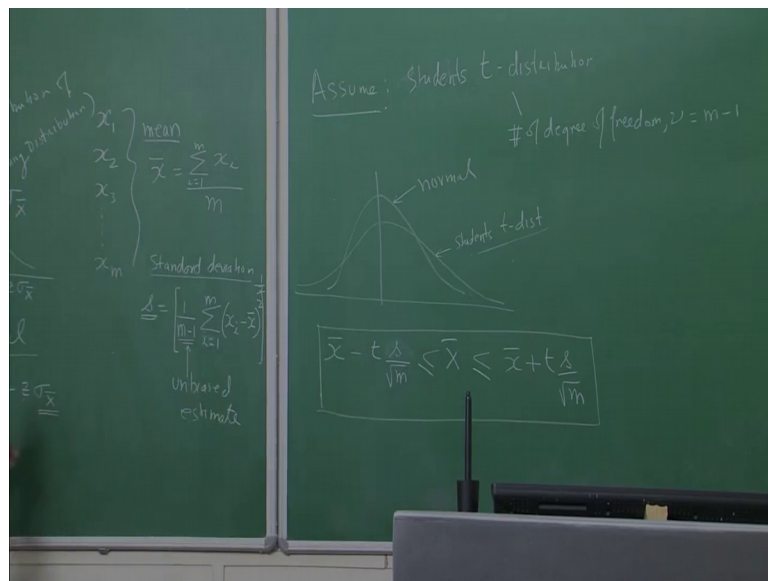 bution of
ng Distribution)
σx̄
zσx̄
l
- z σx̄
x₁
x₂
x₃
⋮
xₘ
mean
x̄ = Σᵢ₌₁ᵐ xᵢ / m
Standard deviation
s = [1/(m-1) Σᵢ₌₁ᵐ (xᵢ - x̄)²]^(1/2)
unbiased
estimate
Assume: Students t-distribution
# of degree of freedom, ν = m-1
normal
students t-dist
x̄ - t s/√m ≤ X̄ ≤ x̄ + t s/√m